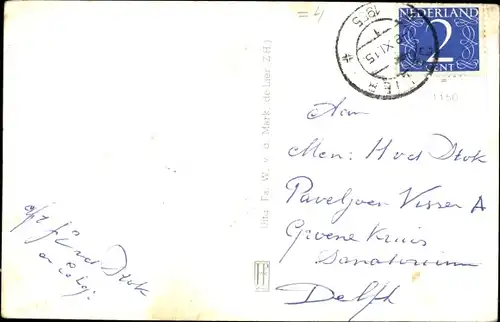 = 4
NEDERLAND
2
CENT
XI.15
1955
1150
Aan
Men: H v d Stok
Paveljoen Visser A
Groene Kruis
Sanatorium
Delft
Uitg. Fa. W. v. d. Mark, de Lier, Z.H.)
v d Stok